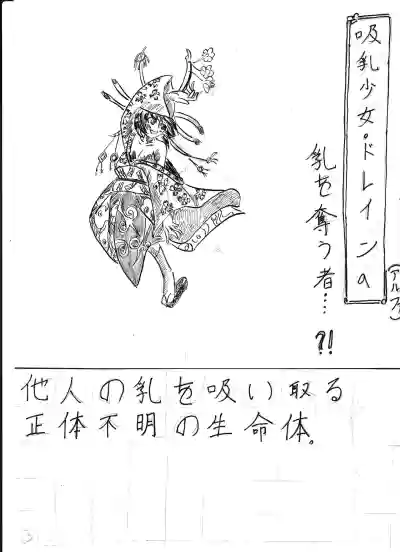 吸乳少女・ドレインα
(アルファ)
乳を奪う者…?!
他人の乳を吸い取る
正体不明の生命体。